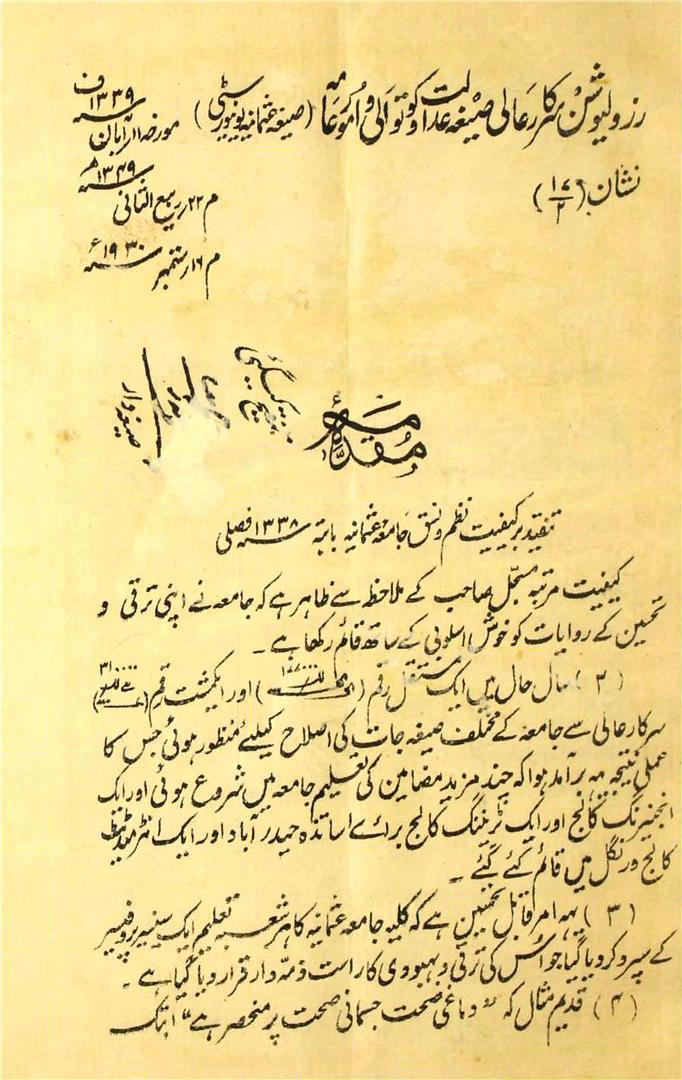 رزولیوشن سرکارعالی صیغہ عدالت وکوتوالی واُمورعامہ (صیغہ عثمانیہ یونیورسٹی) مورخہ ۱۱ر آبان سنہ ۱۳۳۹ ف
نشان (۱۷/۲) م ۲۲ر ربیع الثانی سنہ ۱۳۴۹ھ
م ۱۶ر ستمبر سنہ ۱۹۳۰ء
صیغہ وار
مقدمہ
تنقید بر کیفیت نظم ونسق جامعہ عثمانیہ بابتہ سنہ ۱۳۳۸ فصلی
کیفیت مرتبہ مسجل صاحب کے ملاحظہ سے ظاہر ہے کہ جامعہ نے اپنی ترقی و
تحسین کے روایات کو خوش اسلوبی کے ساتھ قائم رکھا ہے ۔
(۲) سال حال میں ایک مستقل رقم ( ۱۷۷۰۰۰ ) اور ایکمشت رقم ( ۳۱۰۰۰۰ )
سرکار عالی سے جامعہ کے مختلف صیغہ جات کی اصلاح کیلئے منظور ہوئی جس کا
عملی نتیجہ یہ برآمد ہوا کہ چند مزید مضامین کی تعلیم جامعہ میں شروع ہوئی اور ایک
انجنیرنگ کالج اور ایک ٹریننگ کالج برائے اساتذہ حیدرآباد اور ایک انٹرمیڈیٹ
کالج ورنگل میں قائم کئے گئے ۔
(۳) یہہ امر قابل تحسین ہے کہ کلیہ جامعہ عثمانیہ کا ہر شعبہ تعلیم ایک سینیر پروفیسر
کے سپرد کردیا گیا جو اُس کی ترقی وبہبودی کا راست ذمہ دار قرار دیا گیا ہے ۔
(۴) قدیم مثال کہ ”دماغی صحت جسمانی صحت پر منحصر ہے“ ابتک